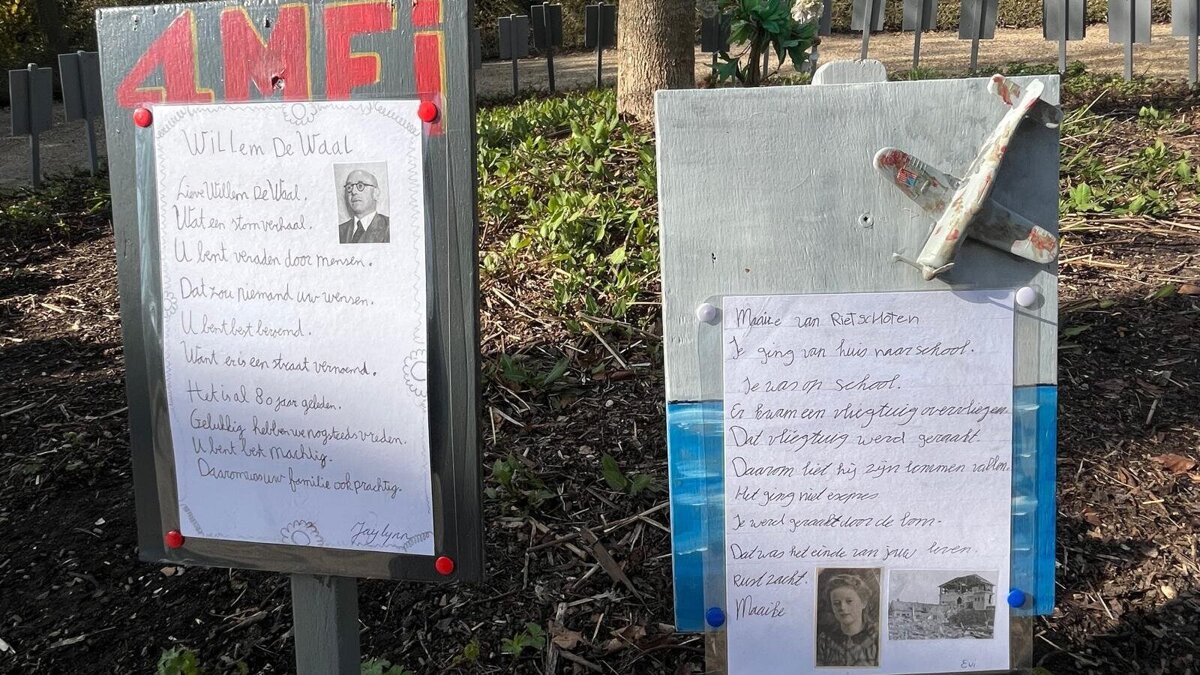 4 MEi
Willem De Waal
Lieve Willem De Waal.
Wat een stom verhaal.
U bent veraden door mensen.
Dat zou niemand uw wensen.
U bent best beroemd.
Want er is een straat vernoemd.
Het is al 80 jaar geleden.
Gelukkig hebben we nog steeds vreden.
U bent bek machtig.
Daarom was uw familie ook prachtig.
Jaylynn
Maaike van Rietschoten
Je ging van huis naar school.
Je was op school.
Er kwam een vliegtuig overvliegen.
Dat vliegtuig werd geraakt.
Daarom liet hij zijn bommen vallen.
Het ging niet expres
Je werd geraakt door de bom.
Dat was het einde van jouw leven.
Rust zacht.
Maaike
Evi